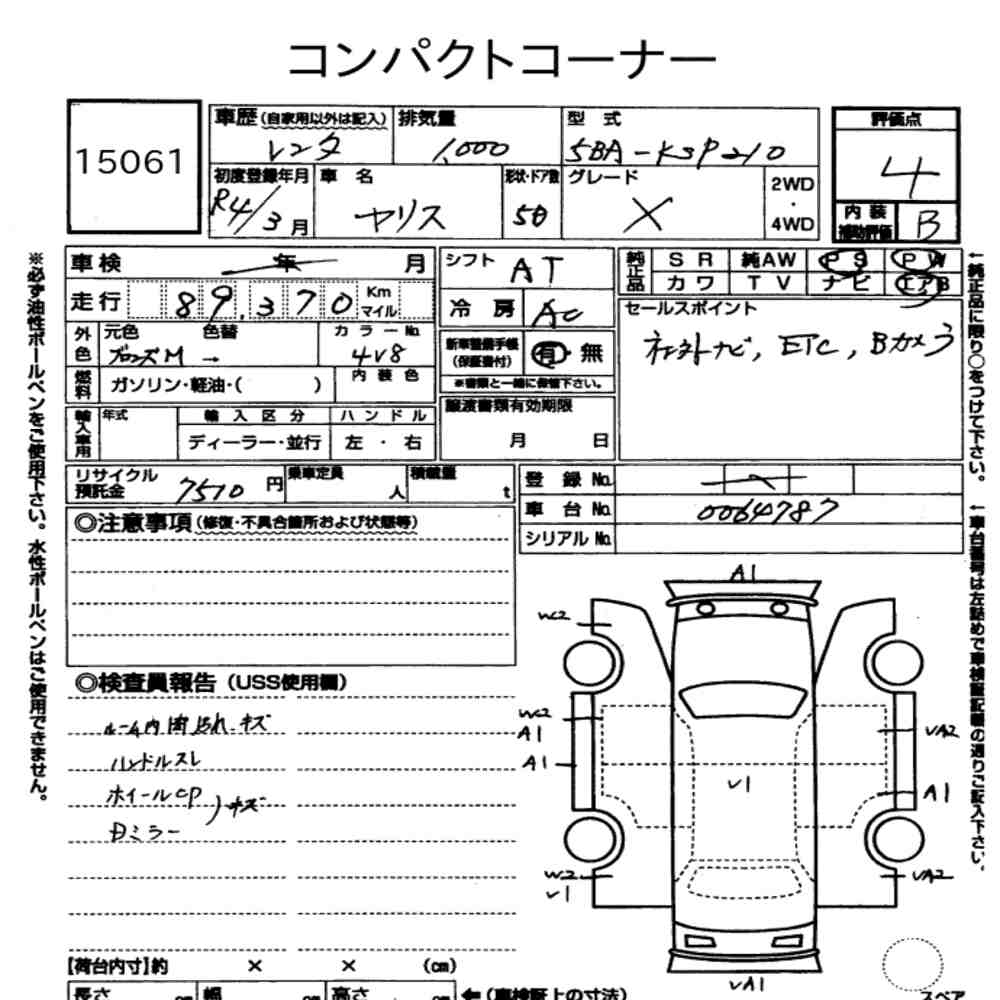 コンパクトコーナー
15061
車歴 (自家用以外は記入) 排気量 型式 評価点
レンタ 1,000 5BA-KSP210 4
初度登録年月 車名 形状・ドア数 グレード 2WD・4WD
R4/3月 ヤリス 5D X
内装補助評価 B
車検 年 月 シフト AT
純正品 SR 純AW PS PW
カワ TV ナビ エアB
走行 89,370 Km マイル 冷房 AC
セールスポイント
ネオトナビ, ETC, Bカメラ
外色 元色 色替 カラーNo.
ブロンズM → 4V8
新車整備手帳(保証書付) 有・無
※書類と一緒に保管下さい。
燃料 ガソリン・軽油・( ) 内装色
輸入車用 年式 輸入区分 ハンドル
ディーラー・並行 左・右
譲渡書類有効期限
月 日
リサイクル預託金 7510円 乗車定員 人 積載量 t
登録No.
車台No. 0064787
シリアルNo.
◎注意事項(修復・不具合箇所および状態等)
◎検査員報告(USS使用欄)
ルーム内 汚れ.キズ
ハンドルスレ
ホイールCP
)キズ
Dミラー
A1
WC2
WC2
A1
A1
W2
V1
V1
VA2
A1
VA2
VA1
スペア
【荷台内寸】約 × × (cm)
長さ cm 幅 cm 高さ cm ←(車検証上の寸法)
※必ず油性ボールペンをご使用下さい。水性ボールペンはご使用できません。
←純正品に限り○をつけて下さい。
←車台番号は左詰めで車検証記載の通りご記入下さい。